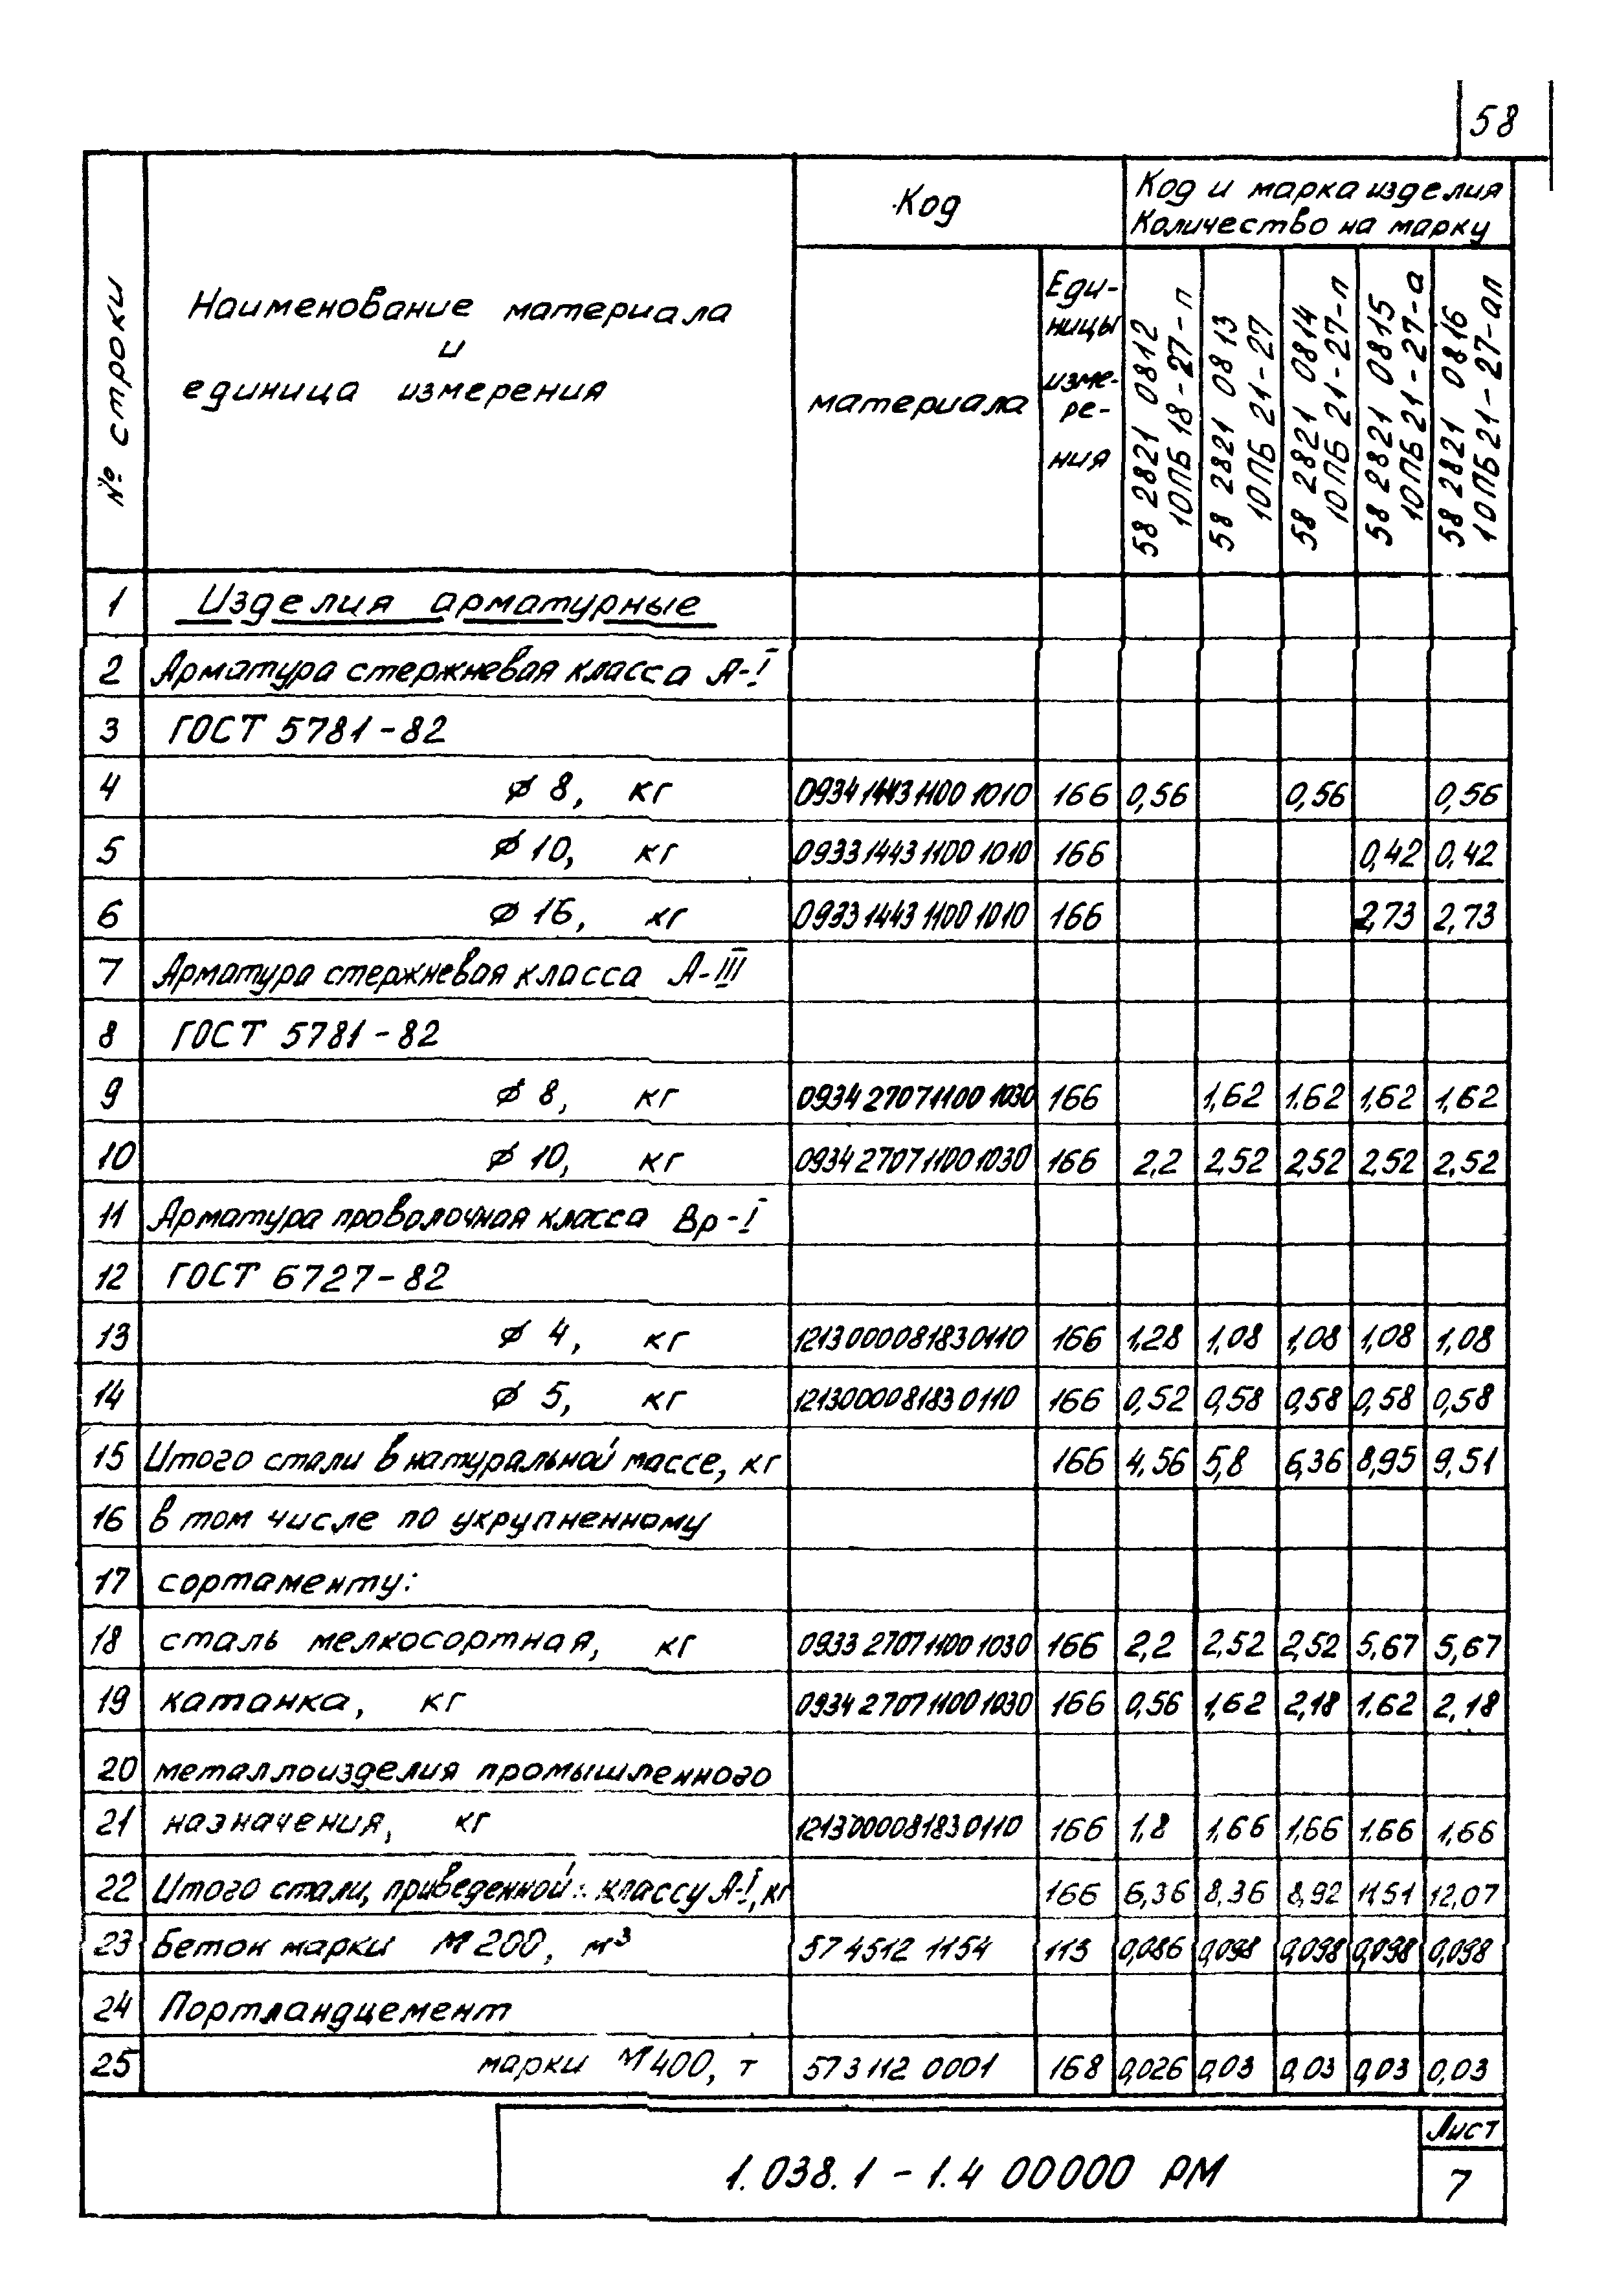 58
№ строки
Наименование материала
и
единица измерения
Код
материала
Еди-
ницы
изме-
ре-
ния
Код и марка изделия
Количество на марку
58 2821 0812
10ПБ 18-27-п
58 2821 0813
10ПБ 21-27
58 2821 0814
10ПБ 21-27-п
58 2821 0815
10ПБ 21-27-а
58 2821 0816
10ПБ 21-27-ап
1 Изделия арматурные
2 Арматура стержневая класса А-I
3 ГОСТ 5781-82
4 ø 8, кг 0934 1443 1100 1010 166 0,56 0,56 0,56
5 ø 10, кг 0933 1443 1100 1010 166 0,42 0,42
6 ø 16, кг 0933 1443 1100 1010 166 2,73 2,73
7 Арматура стержневая класса А-III
8 ГОСТ 5781-82
9 ø 8, кг 0934 2707 1100 1030 166 1,62 1.62 1,62 1,62
10 ø 10, кг 0934 2707 1100 1030 166 2,2 2,52 2,52 2,52 2,52
11 Арматура проволочная класса Вр-I
12 ГОСТ 6727-82
13 ø 4, кг 1213000081830110 166 1,28 1,08 1,08 1,08 1,08
14 ø 5, кг 1213000081830110 166 0,52 0,58 0,58 0,58 0,58
15 Итого стали в натуральной массе, кг 166 4.56 5,8 6,36 8,95 9,51
16 в том числе по укрупненному
17 сортаменту:
18 сталь мелкосортная, кг 0933 2707 1100 1030 166 2,2 2,52 2,52 5,67 5,67
19 катанка, кг 0934 2707 1100 1030 166 0,56 1,62 2,18 1.62 2,18
20 металлоизделия промышленного
21 назначения, кг 1213000081830110 166 1,8 1,66 1,66 1.66 1,66
22 Итого стали, приведенной к классу А-I, кг 166 6,36 8,36 8,92 11,51 12,07
23 Бетон марки М 200, м³ 57 4512 1154 113 0,086 0,098 0,098 0,098 0,098
24 Портландцемент
25 марки М 400, т 573 112 0001 168 0,026 0,03 0,03 0,03 0,03
1.038.1-1.4 00000 РМ
Лист
7